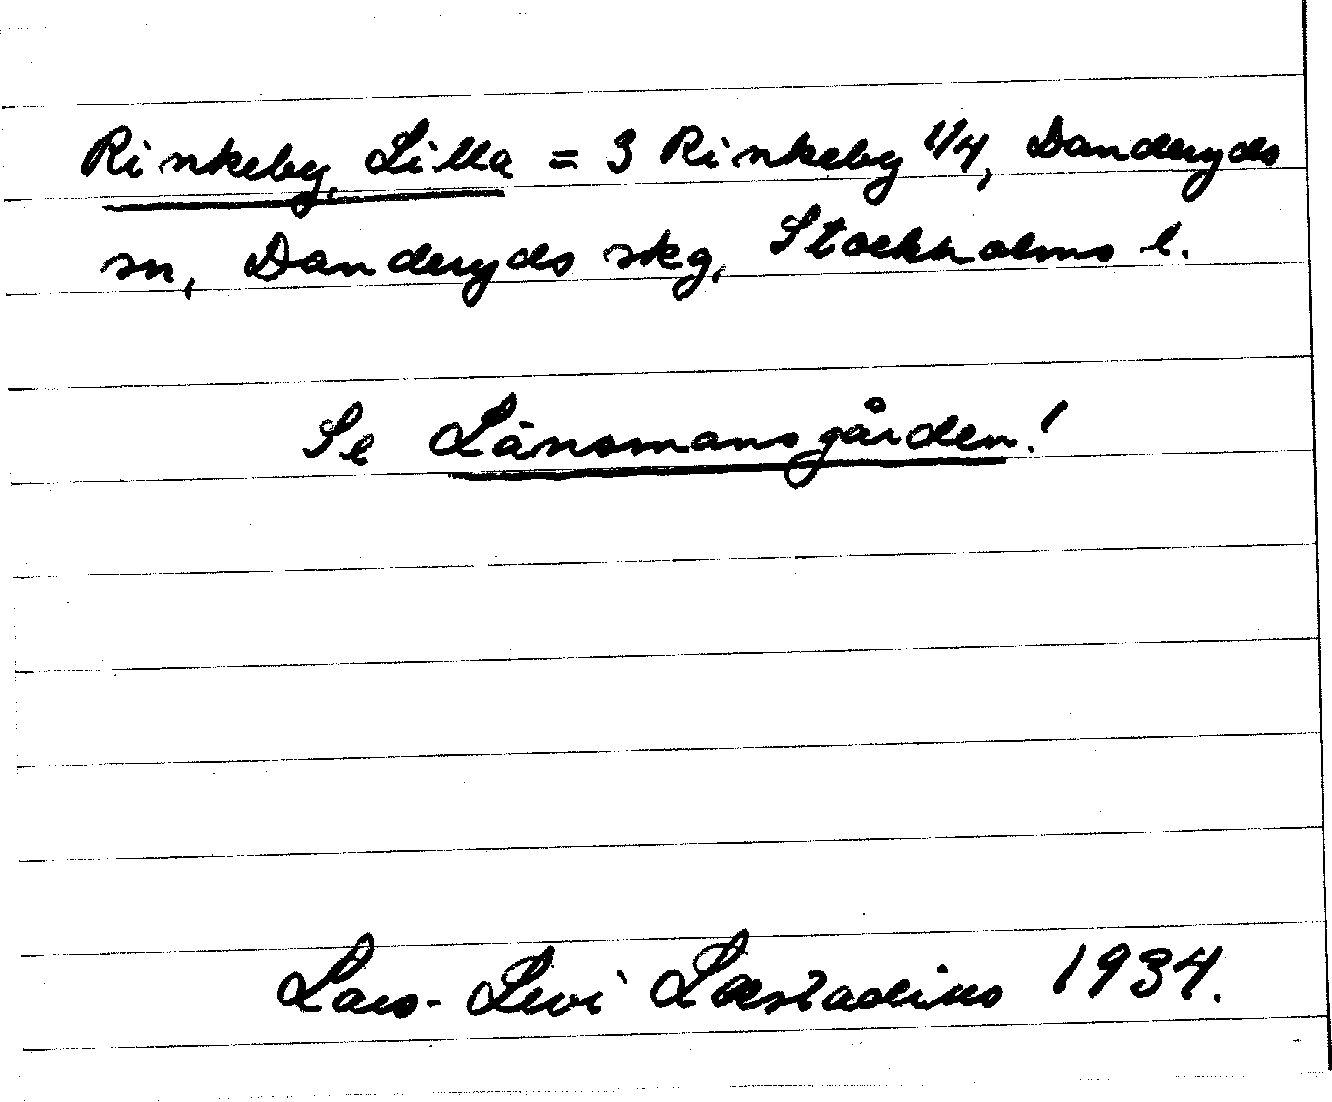 Rinkeby, Lilla = 3 Rinkeby 1/4, Danderyds
sn, Danderyds skg, Stockholms l.
Se Länsmansgården!
Lars-Levi Læstadius 1934.